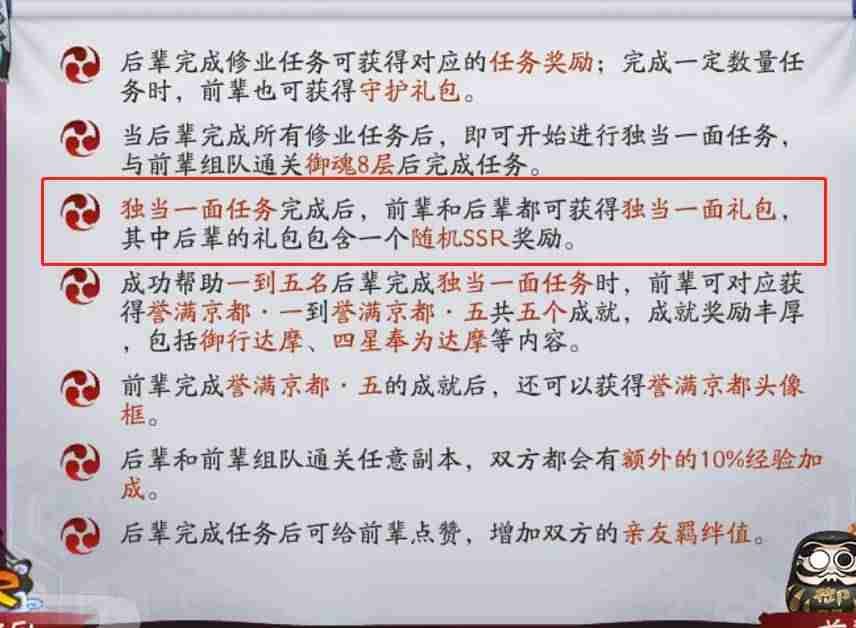 后辈完成修业任务可获得对应的任务奖励；完成一定数量任
务时，前辈也可获得守护礼包。
当后辈完成所有修业任务后，即可开始进行独当一面任务，
与前辈组队通关御魂8层后完成任务。
独当一面任务完成后，前辈和后辈都可获得独当一面礼包，
其中后辈的礼包包含一个随机SSR奖励。
成功帮助一到五名后辈完成独当一面任务时，前辈可对应获
得誉满京都·一到誉满京都·五共五个成就，成就奖励丰厚
，包括御行达摩、四星奉为达摩等内容。
前辈完成誉满京都·五的成就后，还可以获得誉满京都头像
框。
后辈和前辈组队通关任意副本，双方都会有额外的10%经验加
成。
后辈完成任务后可给前辈点赞，增加双方的亲友羁绊值。
御